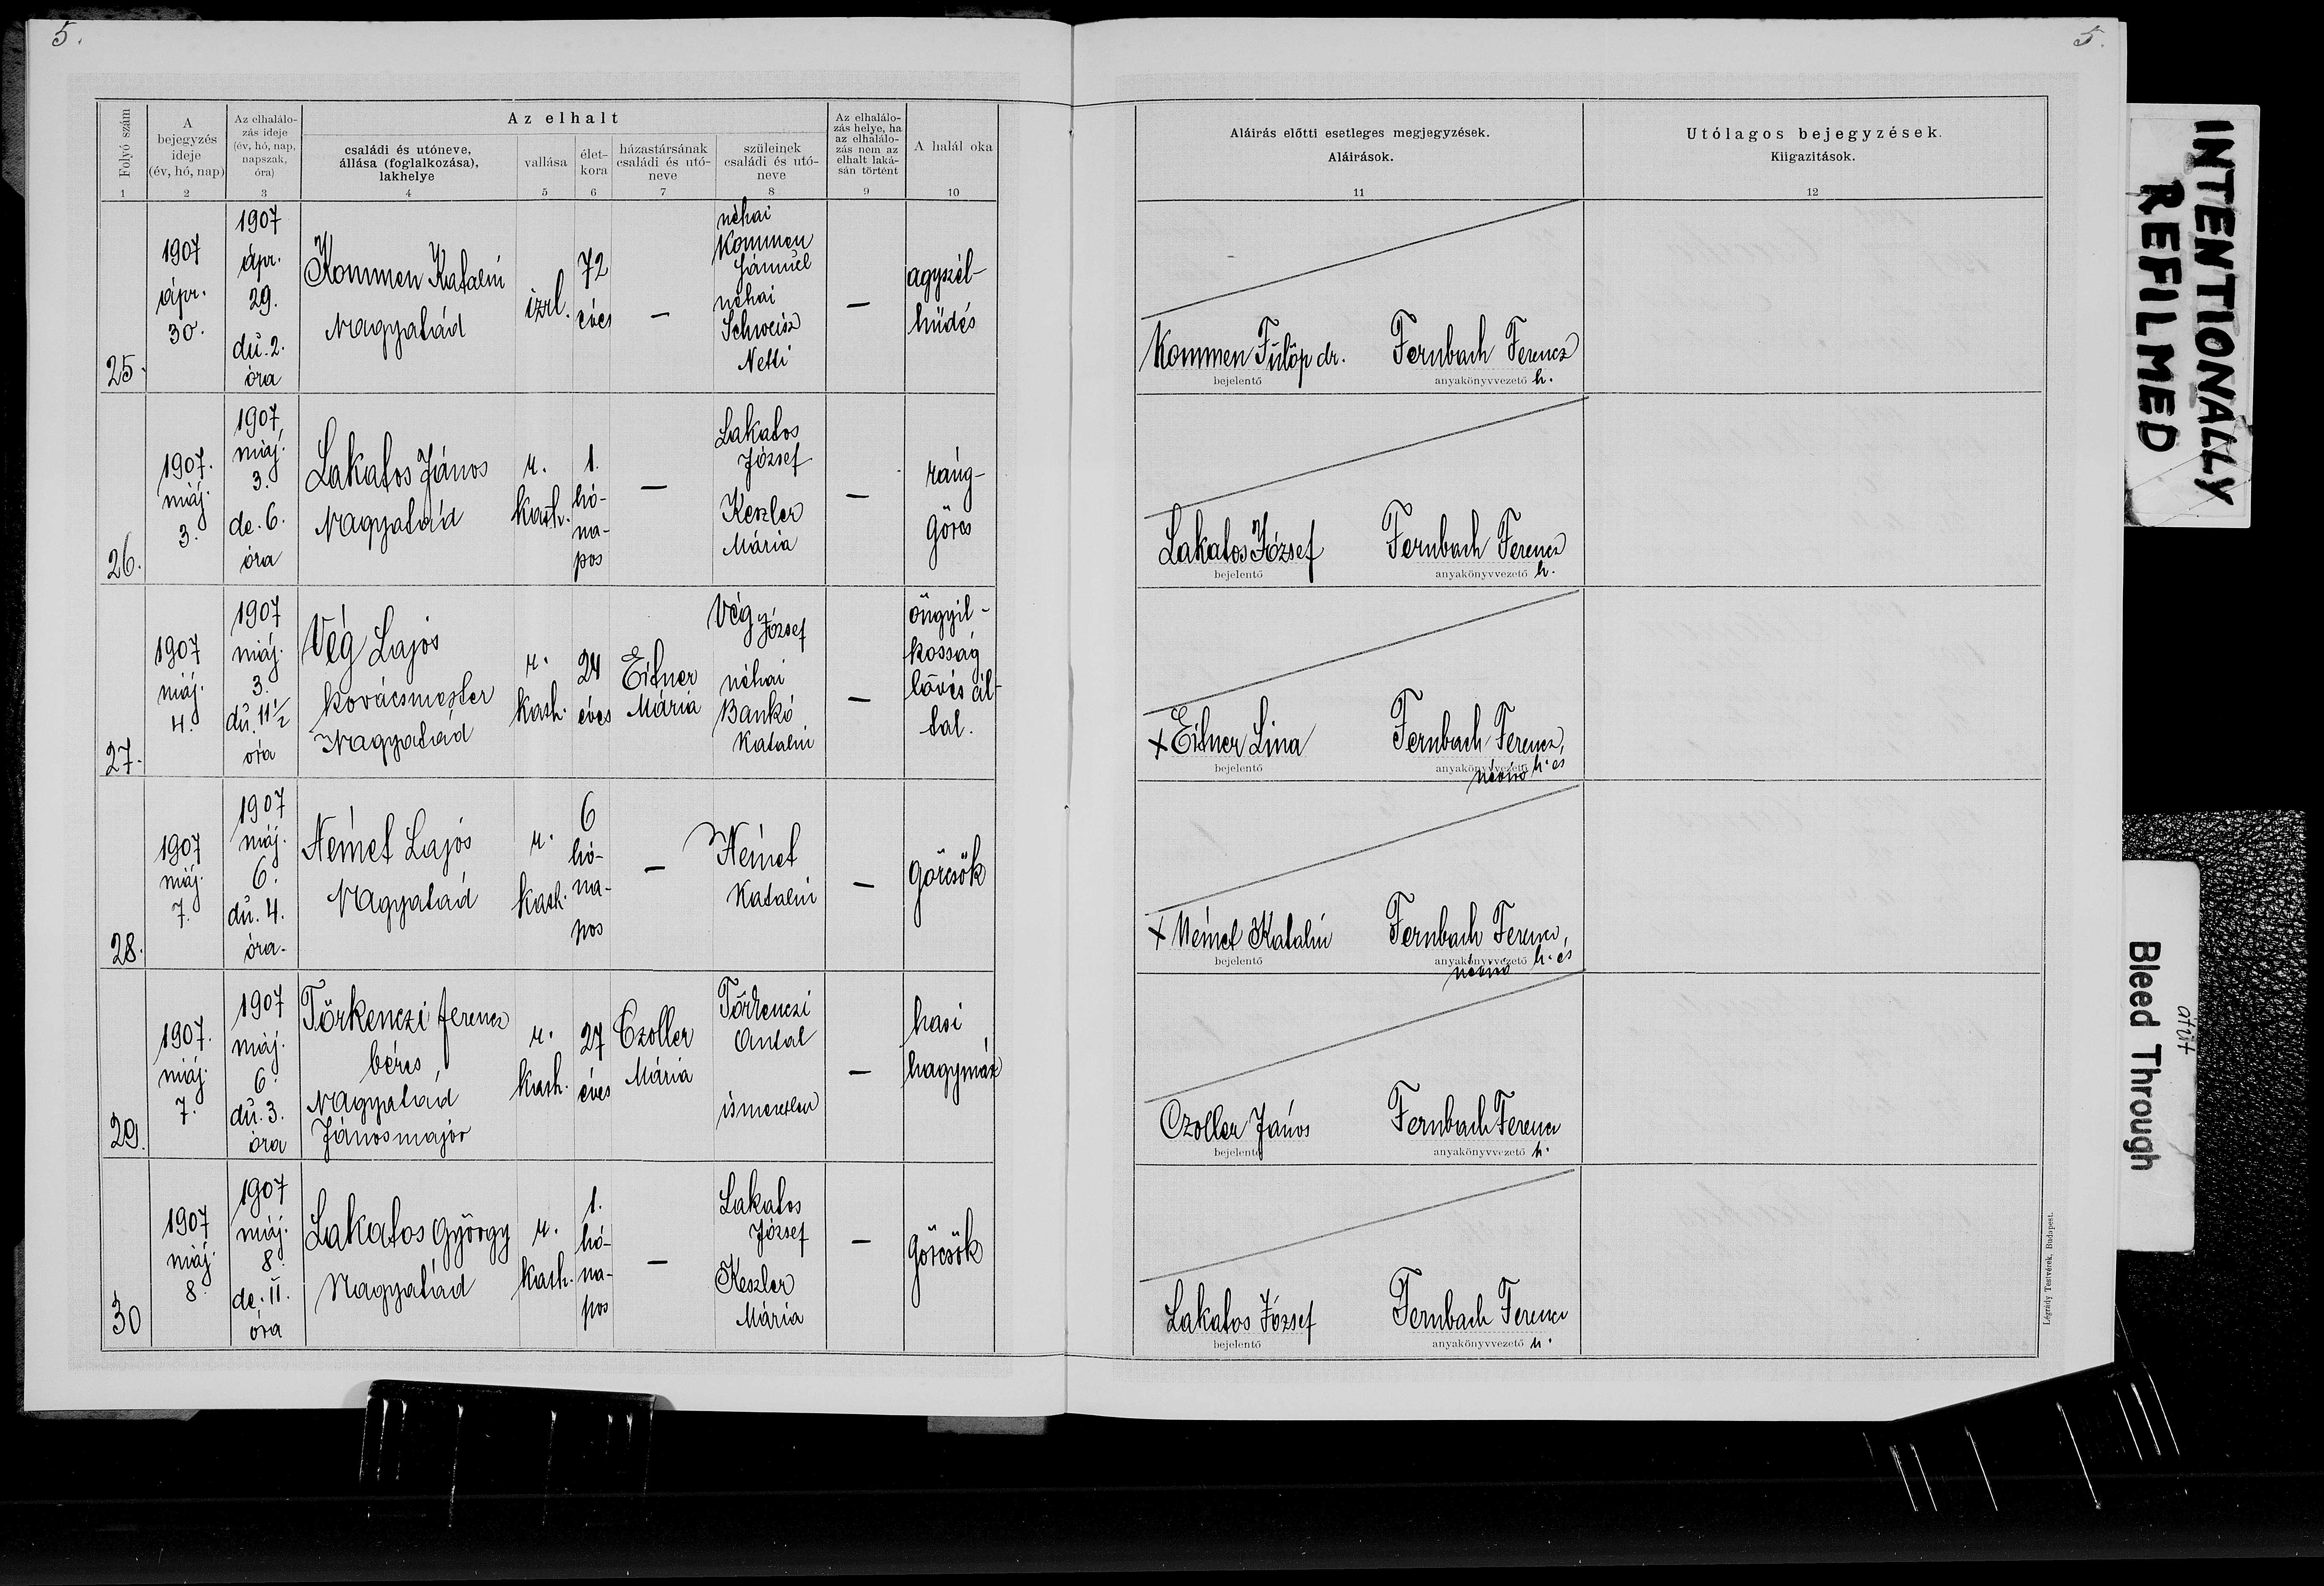 5.
5.
Folyó szám
1
A
bejegyzés
ideje
(év, hó, nap)
2
Az elhalálo-
zás ideje
(év, hó, nap,
napszak,
óra)
3
Az elhalt
családi és utóneve,
állása (foglalkozása),
lakhelye
4
vallása
5
élet-
kora
6
házastársának
családi és utó-
neve
7
szüleinek
családi és utó-
neve
8
Az elhalálo-
zás helye, ha
az elhalálo-
zás nem az
elhalt laká-
sán történt
9
A halál oka
10
Aláírás előtti esetleges megjegyzések.
Aláírások.
11
Utólagos bejegyzések.
Kiigazitások.
12
25.
1907
ápr.
30.
1907
ápr.
29.
du. 2.
óra
Kommen Katalin
Nagyatád
izrl.
72
éves
—
néhai
Kommen
Sámuel
néhai
Schweisz
Netti
—
agyszél-
hüdés
Kommen Fülöp dr.
bejelentő
Fernbach Ferencz
anyakönyvvezető h.
26.
1907.
máj.
3.
1907,
máj.
3.
de. 6.
óra
Lakatos János
Nagyatád
r.
kath.
1.
hó-
na-
pos
—
Lakatos
József
Keszler
Mária
—
ráng-
görcs
Lakatos József
bejelentő
Fernbach Ferencz
anyakönyvvezető h.
27.
1907
máj.
4.
1907
máj.
3.
du. 11 1/2
óra
Vég Lajos
kovácsmester
Nagyatád
r.
kath.
24
éves
Eitner
Mária
Vég
József
néhai
Bankó
Katalin
—
öngyil-
kosság
lövés ál-
tal.
x Eitner Lina
bejelentő
Fernbach Ferencz,
anyakönyvvezető h. és
névíró
28.
1907
máj.
7.
1907
máj.
6.
du. 4.
óra.
Német Lajos
Nagyatád
r.
kath.
6
hó-
na-
pos
—
Német
Katalin
—
görcsök
x Német Katalin
bejelentő
Fernbach Ferencz,
anyakönyvvezető h. és
névíró
29.
1907.
máj.
7.
1907
máj.
6.
du. 3.
óra
Törkenczi Ferencz
béres
Nagyatád
Jánosmajor
r.
kath.
27
éves
Czoller
Mária
Törkenczi
Antal
ismeretlen
—
hasi
hagymáz
Czoller János
bejelentő
Fernbach Ferencz
anyakönyvvezető h.
30
1907
máj.
8.
1907
máj.
8.
de. 11.
óra
Lakatos György
Nagyatád
r.
kath.
1.
hó-
na-
pos
—
Lakatos
József
Keszler
Mária
—
görcsök
Lakatos József
bejelentő
Fernbach Ferencz
anyakönyvvezető h.
Légrády Testvérek, Budapest.
INTENTIONALLY
REFILMED
átüt
Bleed Through